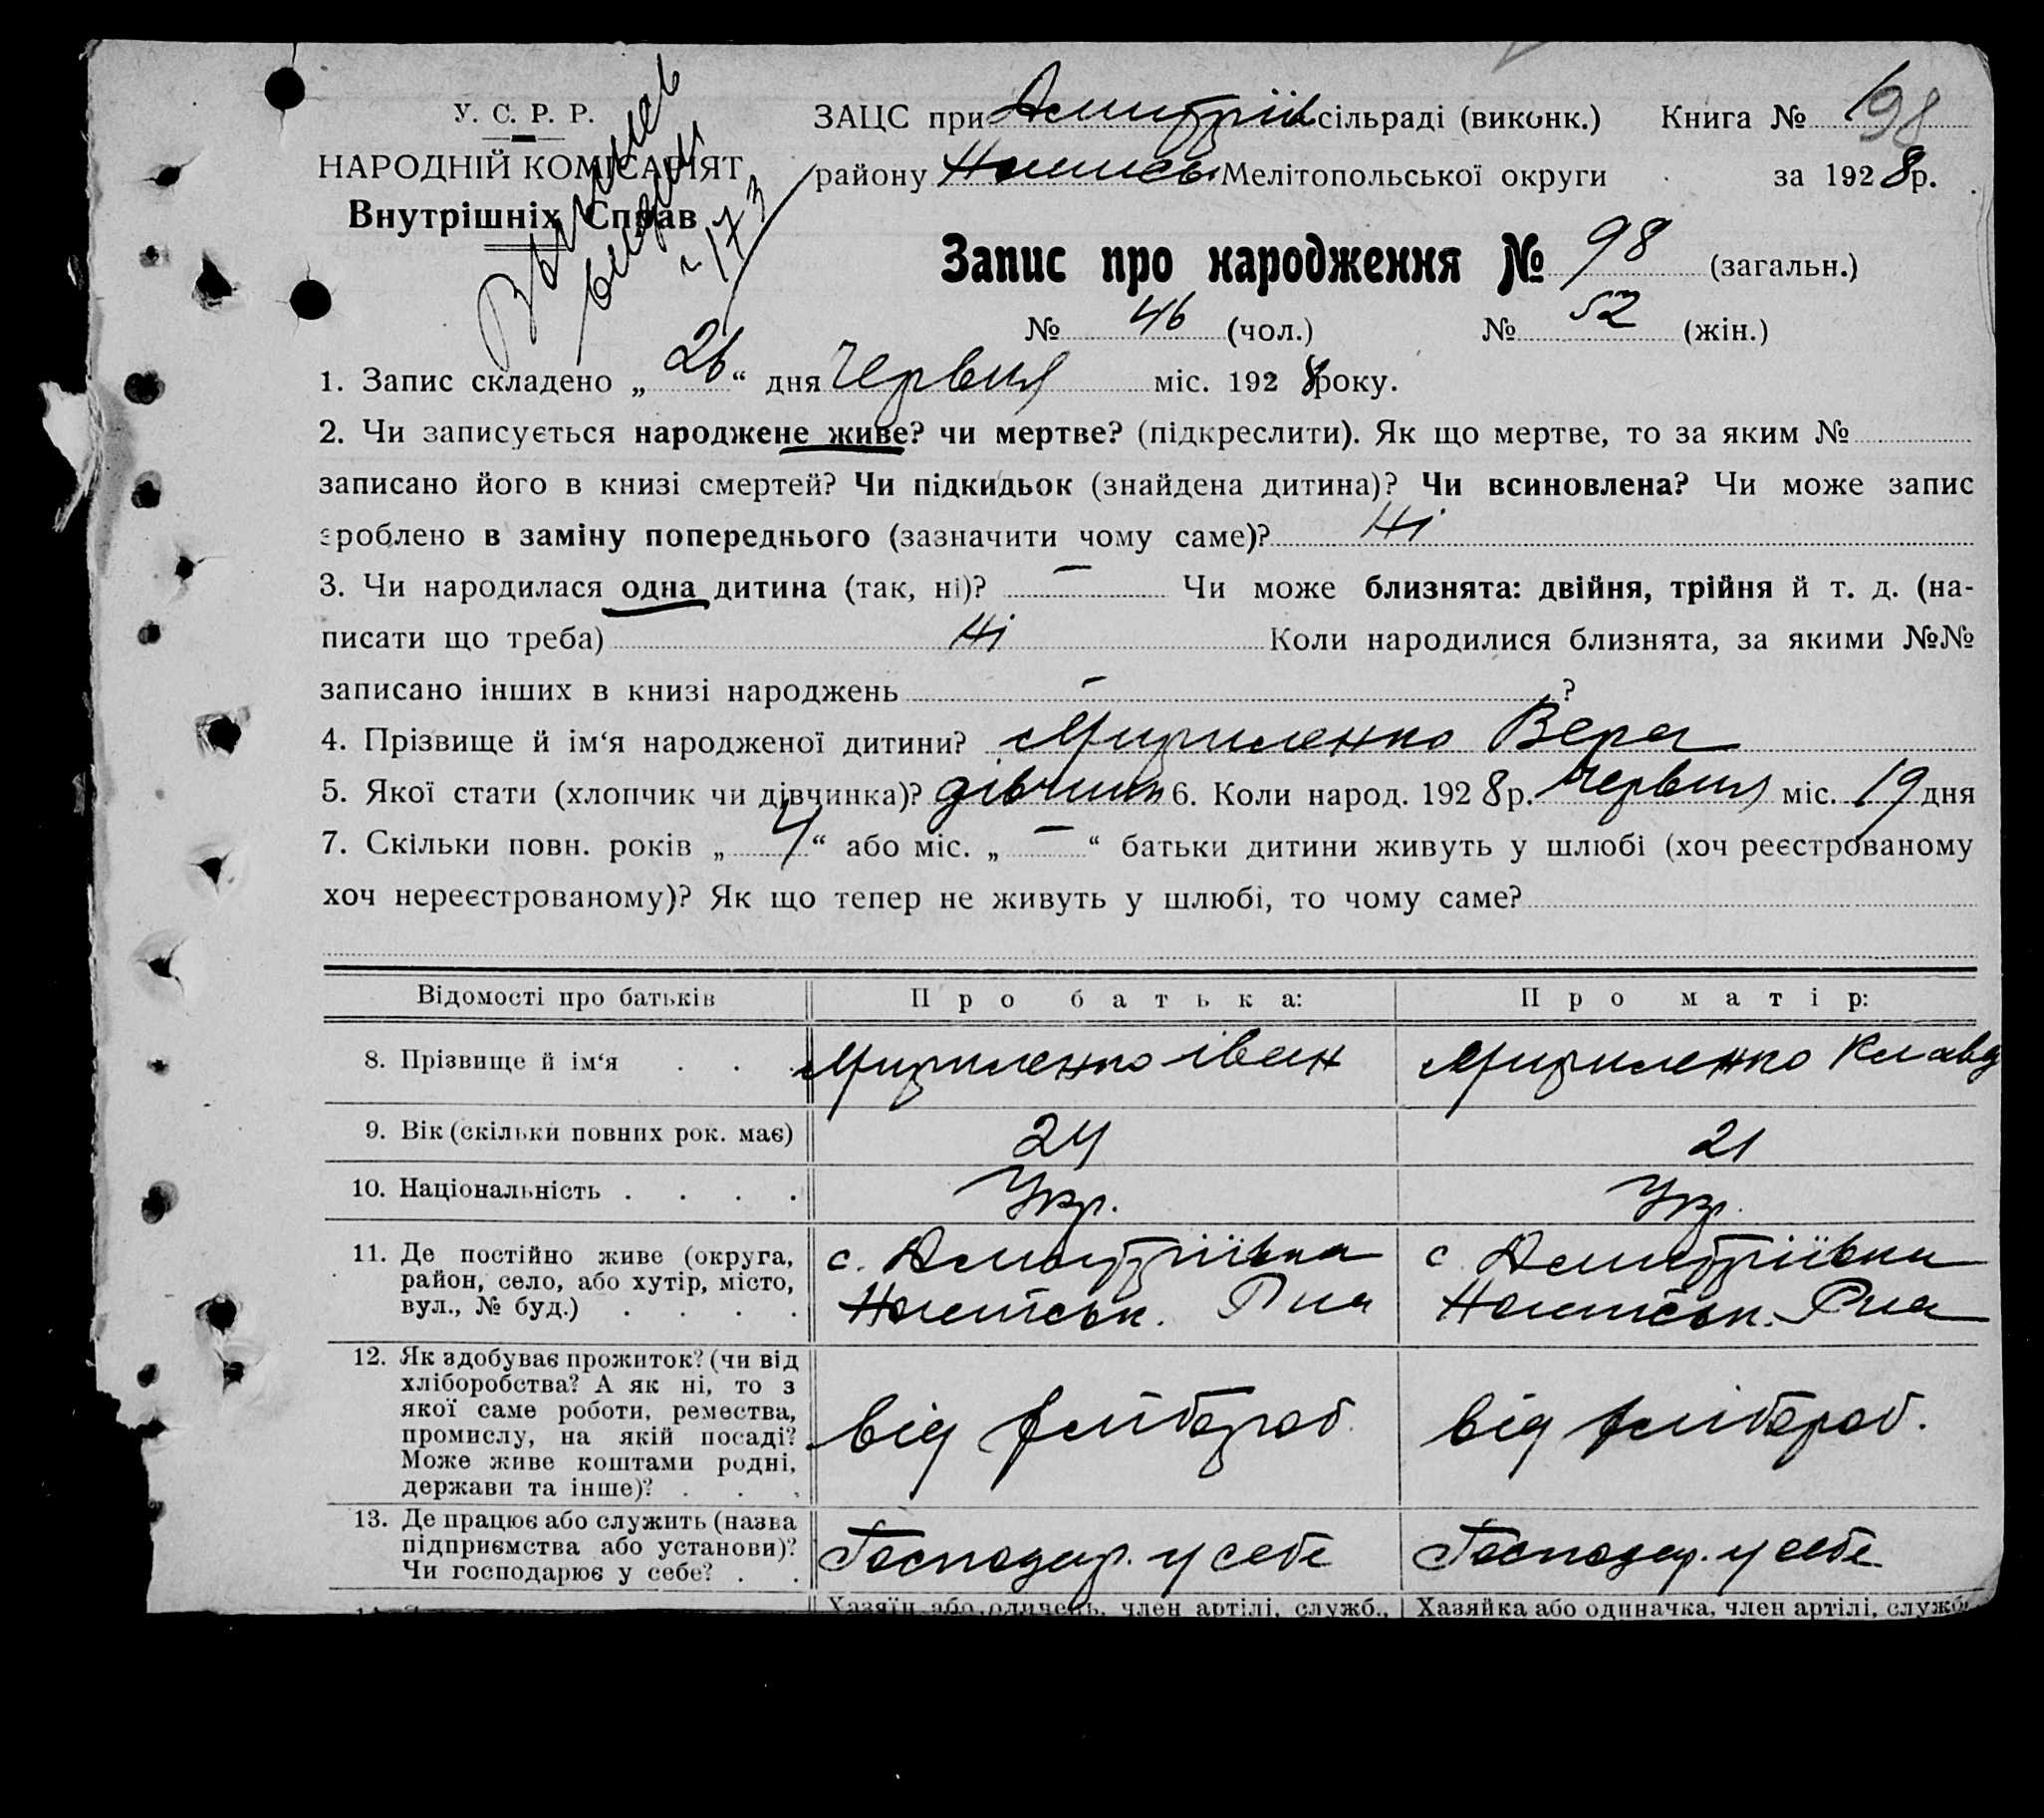 У. С. Р. Р.
НАРОДНІЙ КОМІСАРІЯТ
Внутрішніх Справ
ЗАЦС при Дмитрів сільраді (виконк.) Книга № 1 98
району Мелітопольської округи за 1928р.
Запис про народження № 98 (загальн.)
№ 46 (чол.) № 52 (жін.)
1. Запис складено „26“ дня Червня міс. 1928 року.
2. Чи записується народжене живе? чи мертве? (підкреслити). Як що мертве, то за яким №
записано його в книзі смертей? Чи підкидьок (знайдена дитина)? Чи всиновлена? Чи може запис
зроблено в заміну попереднього (зазначити чому саме)? Ні
3. Чи народилася одна дитина (так, ні)? — Чи може близнята: двійня, трійня й т. д. (на-
писати що треба) Ні Коли народилися близнята, за якими №№
записано інших в книзі народжень — ?
4. Прізвище й ім‘я народженої дитини? Вера
5. Якої стати (хлопчик чи дівчинка)? дівчинк 6. Коли народ. 1928р. Червня міс. 19 дня
7. Скільки повн. років „4“ або міс. „—“ батьки дитини живуть у шлюбі (хоч реєстрованому
хоч нереєстрованому)? Як що тепер не живуть у шлюбі, то чому саме?
Відомості про батьків Про батька: Про матір:
8. Прізвище й ім‘я . . . іван Клавд
9. Вік (скільки повних рок. має) 24 21
10. Національність . . . . Укр. Укр.
11. Де постійно живе (округа, с. Дмитріївка с. Дмитріївка
район, село, або хутір, місто,
вул., № буд.) . . . . Р-на Р-на
12. Як здобуває прожиток? (чи від
хліборобства? А як ні, то з
якої саме роботи, ремества,
промислу, на якій посаді? від хлібороб. від хлібороб.
Може живе коштами родні,
держави та інше)? . . .
13. Де працює або служить (назва
підприємства або установи)? Господар. у себе Господар. у себе
Чи господарює у себе? . .
Хазяїн або одинець, член артілі, служб., Хазяйка або одиначка, член артілі, служб.